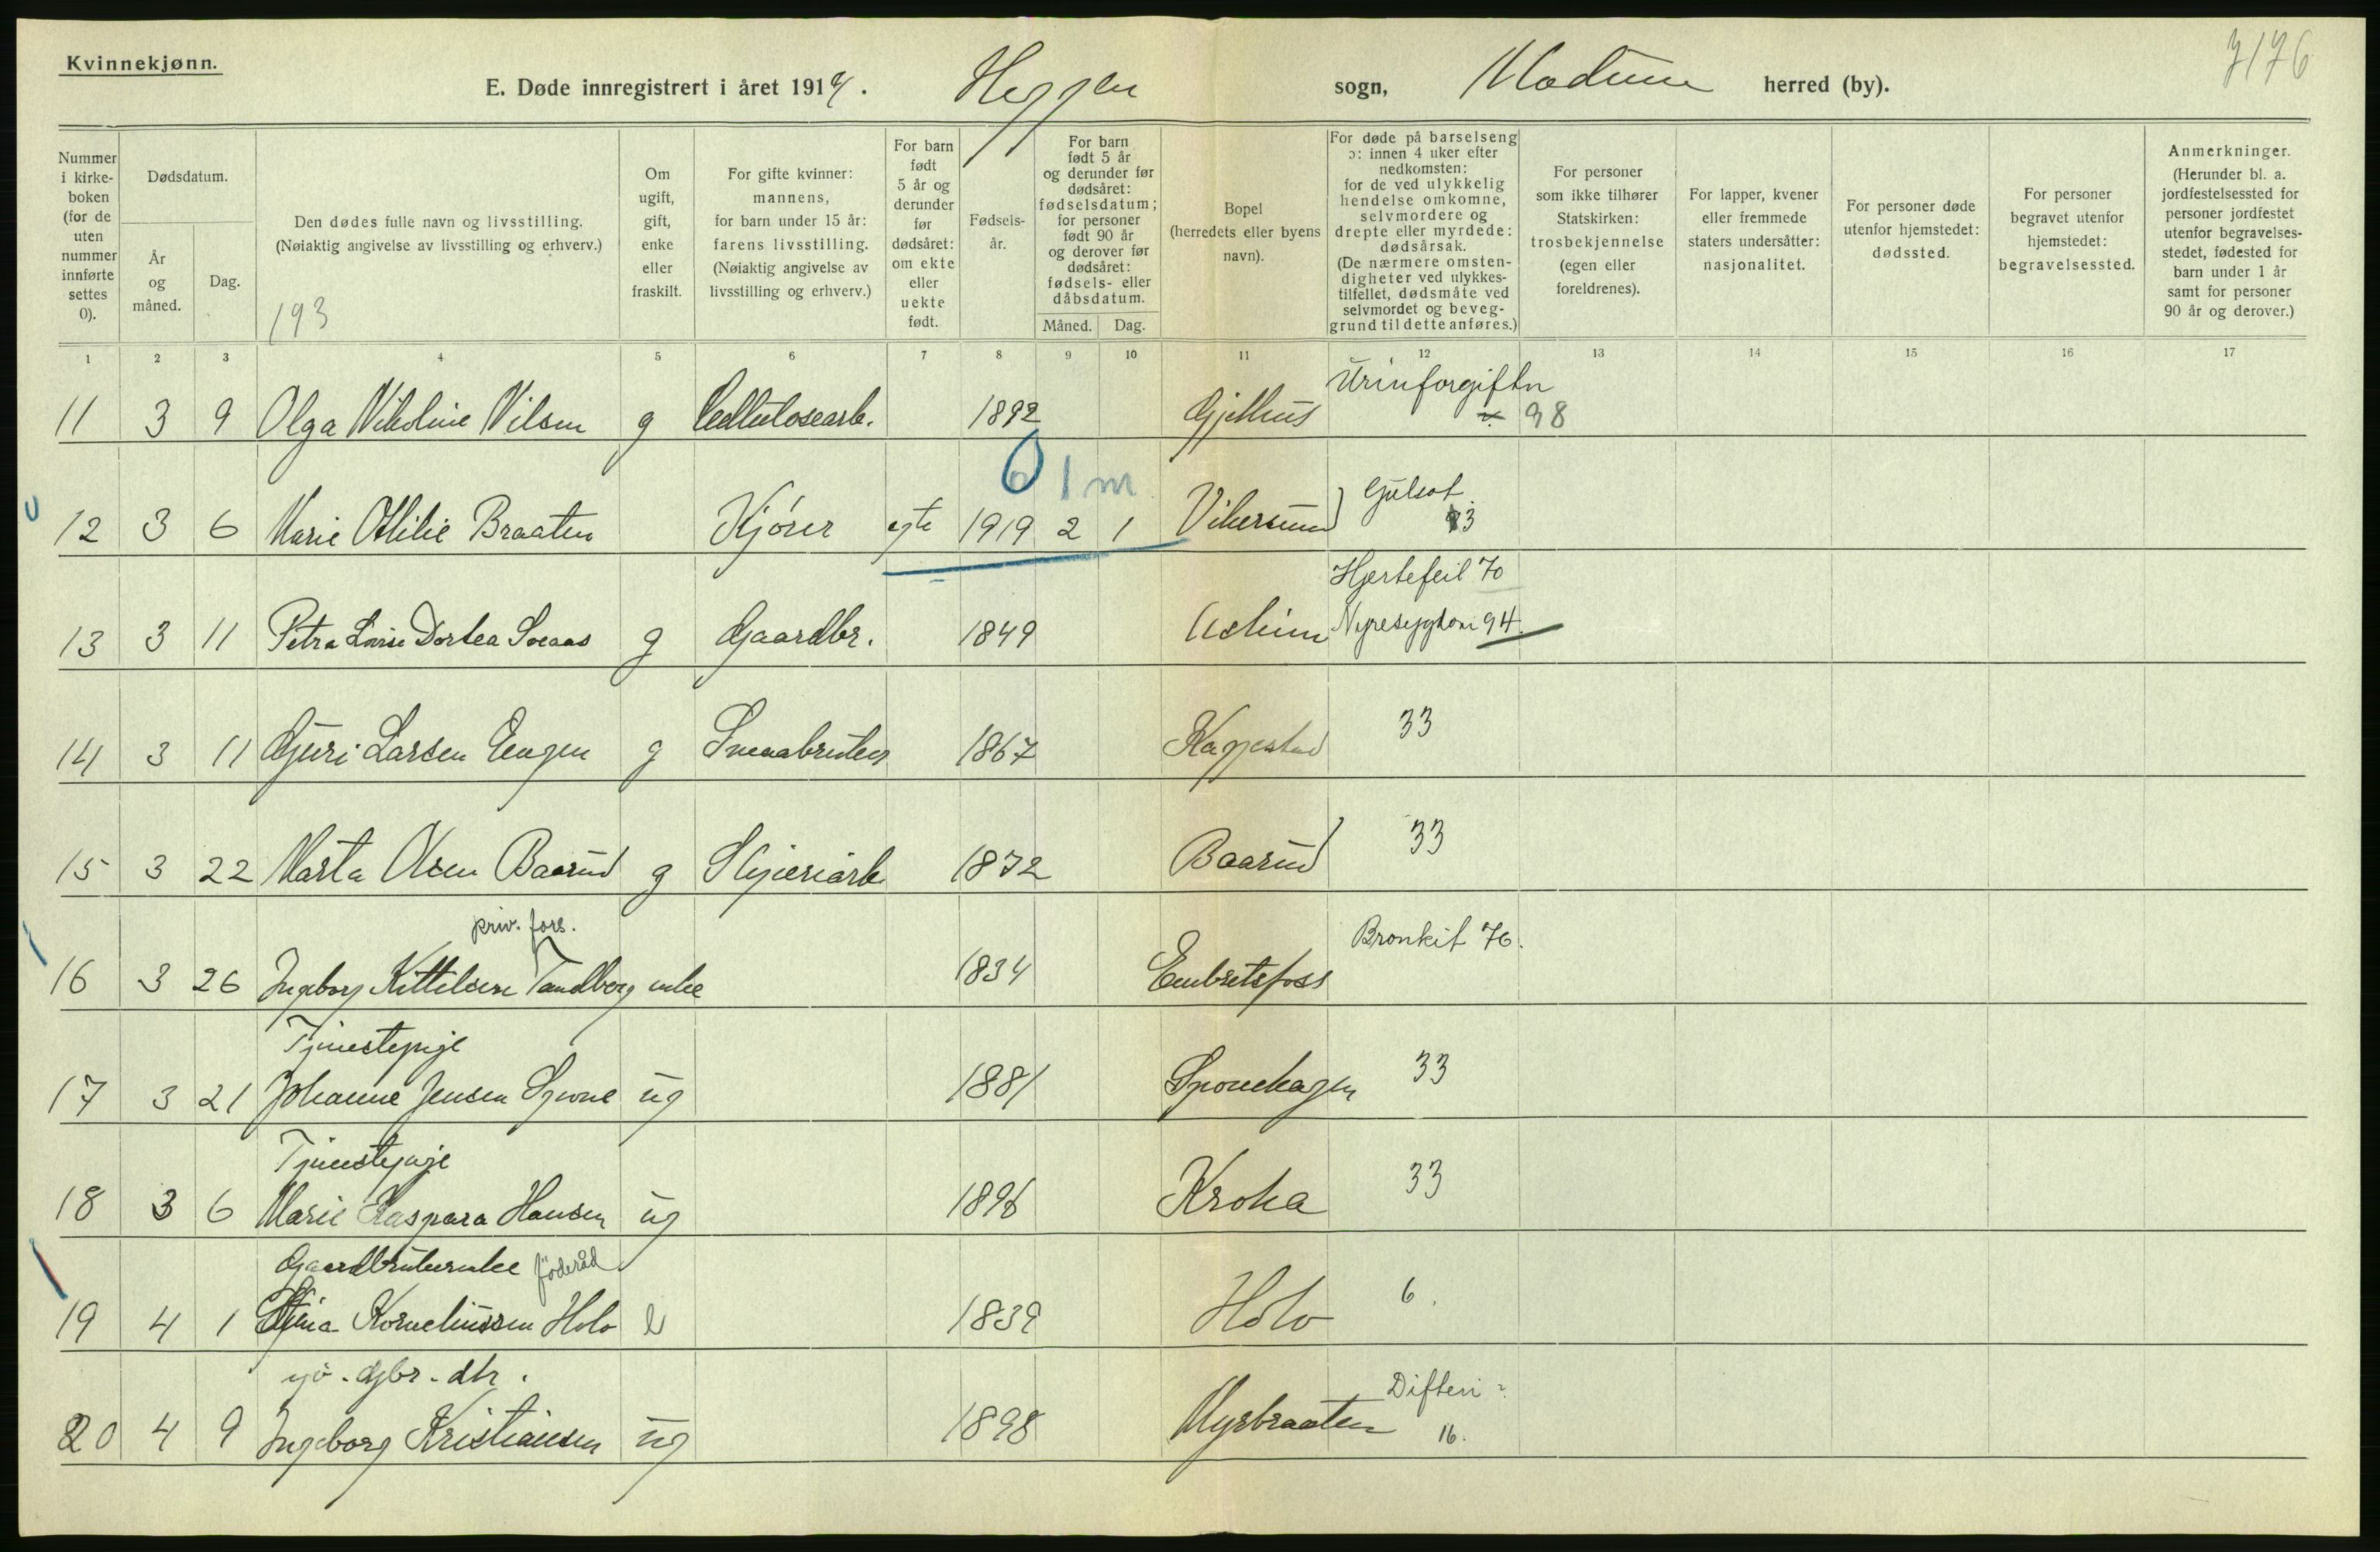 Kvinnekjønn.
7176
E. Døde innregistrert i året 1919. Heggen sogn, Modum herred (by).
Nummer i kirke-boken (for de uten nummer innførte settes 0).
Dødsdatum.
År og måned.
Dag.
Den dødes fulle navn og livsstilling.
(Nøiaktig angivelse av livsstilling og erhverv.)
193
Om ugift, gift, enke eller fraskilt.
For gifte kvinner: mannens, for barn under 15 år: farens livsstilling. (Nøiaktig angivelse av livsstilling og erhverv.)
For barn født 5 år og derunder før dødsåret: om ekte eller uekte født.
Fødsels-år.
For barn født 5 år og derunder før dødsåret: fødselsdatum; for personer født 90 år og derover før dødsåret: fødsels- eller dåbsdatum.
Måned. Dag.
Bopel (herredets eller byens navn).
For døde på barselseng ɔ: innen 4 uker efter nedkomsten: for de ved ulykkelig hendelse omkomne, selvmordere og drepte eller myrdede: dødsårsak. (De nærmere omsten-digheter ved ulykkes-tilfellet, dødsmåte ved selvmordet og beveg-grund til dette anføres.)
For personer som ikke tilhører Statskirken: trosbekjennelse (egen eller foreldrenes).
For lapper, kvener eller fremmede staters undersåtter: nasjonalitet.
For personer døde utenfor hjemstedet: dødssted.
For personer begravet utenfor hjemstedet: begravelsessted.
Anmerkninger. (Herunder bl. a. jordfestelsessted for personer jordfestet utenfor begravelses-stedet, fødested for barn under 1 år samt for personer 90 år og derover.)
1 2 3 4 5 6 7 8 9 10 11 12 13 14 15 16 17
Urinforgiftn
11 3 9 Olga Nikoline Nilsen g Cellulosearb. 1892 Gjethus 98
0 1 m
Gulsot
12 3 6 Marie Otilie Braaten Kjører egte 1919 2 1 Vikersund 93
Hjertefeil 70
13 3 11 Petra Lovise Dortea Soeaas g Gaardbr. 1849 Aslum Nyresygdom 94.
14 3 11 Guri Larsen Engen g Smaabruker 1867 Kaggestad 33
15 3 22 Marta Olsen Baarud g Sliperiarb 1872 Baarud 33
priv. fors. Bronkit 76.
16 3 26 Ingeborg Kittilsen Tandberg enke 1834 Embretsfoss
Tjenestepige
17 3 21 Johanne Jensen Spone ug 1881 Sponehagen 33
Tjenestepige
18 3 6 Marie Kaspara Hansen ug 1896 Kroka 33
Gaardbrukerenke föderåd
19 4 1 Korneliussen Holo e 1839 Holo 6.
gbr. dtr. Difteri ?
20 4 9 Ingeborg Kristiansen ug 1898 Myrbraaten 16.